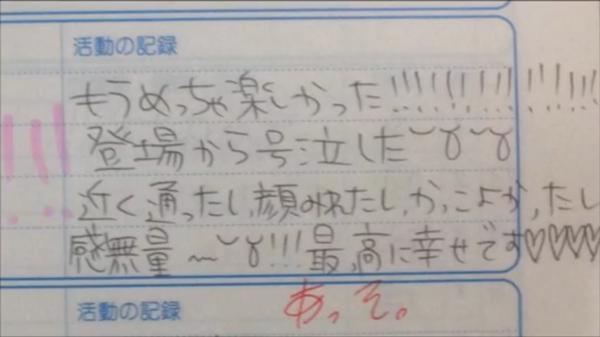 活動の記録
もうめっちゃ楽しかった!!!!!!!!!!!!!!
登場から号泣した
近く通ったし、顔みれたし、かっこよかったし
感無量〜!!!最高に幸せです♡♡♡♡
活動の記録
あっそ。